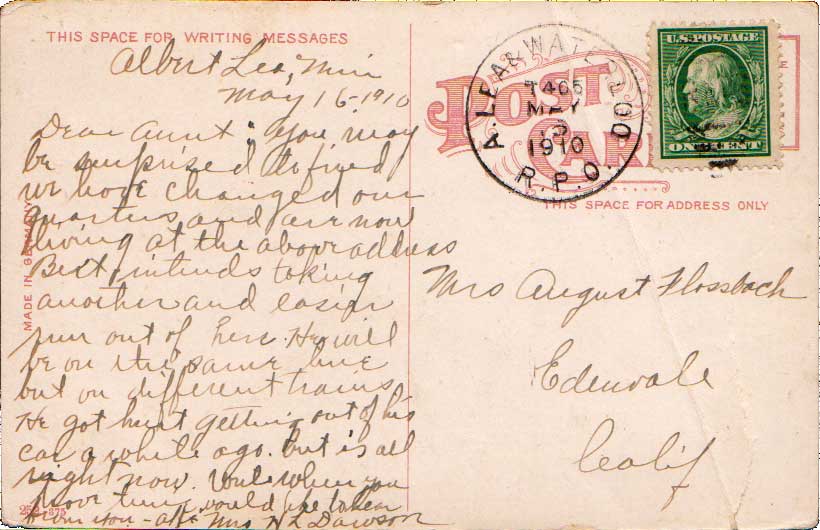 THIS SPACE FOR WRITING MESSAGES
Albert Lea, Min
May 16-1910
Dear Aunt: You may
be surprised to find
we have changed our
quarters and are now
living at the above address
Bert intends taking
another and easier
run out of here. He will
be on the same line
but on different trains
He got hurt getting out of his
car a while ago. but is all
right now. when you
have time would like to hear
from you - Mrs N L Dawson
MADE IN GERMANY
375
POST CARD
A. LEA & WATE
MAY
1910
R.P.O.
U.S. POSTAGE
ONE CENT
THIS SPACE FOR ADDRESS ONLY
Mrs August Flossbach
Edenvale
Calif